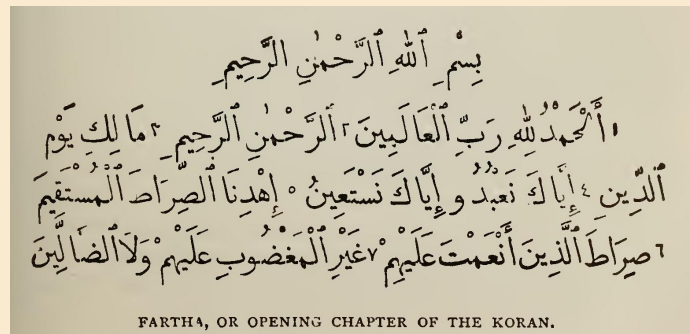 بِسْمِ ٱللّٰهِ ٱلرَّحْمٰنِ ٱلرَّحِيمِ
١ أَلْحَمْدُ لِلّٰهِ رَبِّ ٱلْعَالَمِينَ ٢ أَلرَّحْمٰنِ ٱلرَّحِيمِ ٣ مَالِكِ يَوْمِ
ٱلدِّينِ ٤ إِيَّاكَ نَعْبُدُ و إِيَّاكَ نَسْتَعِينُ ٥ إِهْدِنَا ٱلصِّرَاطَ ٱلْمُسْتَقِيمَ
٦ صِرَاطَ ٱلَّذِينَ أَنْعَمْتَ عَلَيْهِمْ ٧ غَيْرِ ٱلْمَغْضُوبِ عَلَيْهِمْ وَلَا ٱلضَّالِّينَ
FARTHA, OR OPENING CHAPTER OF THE KORAN.